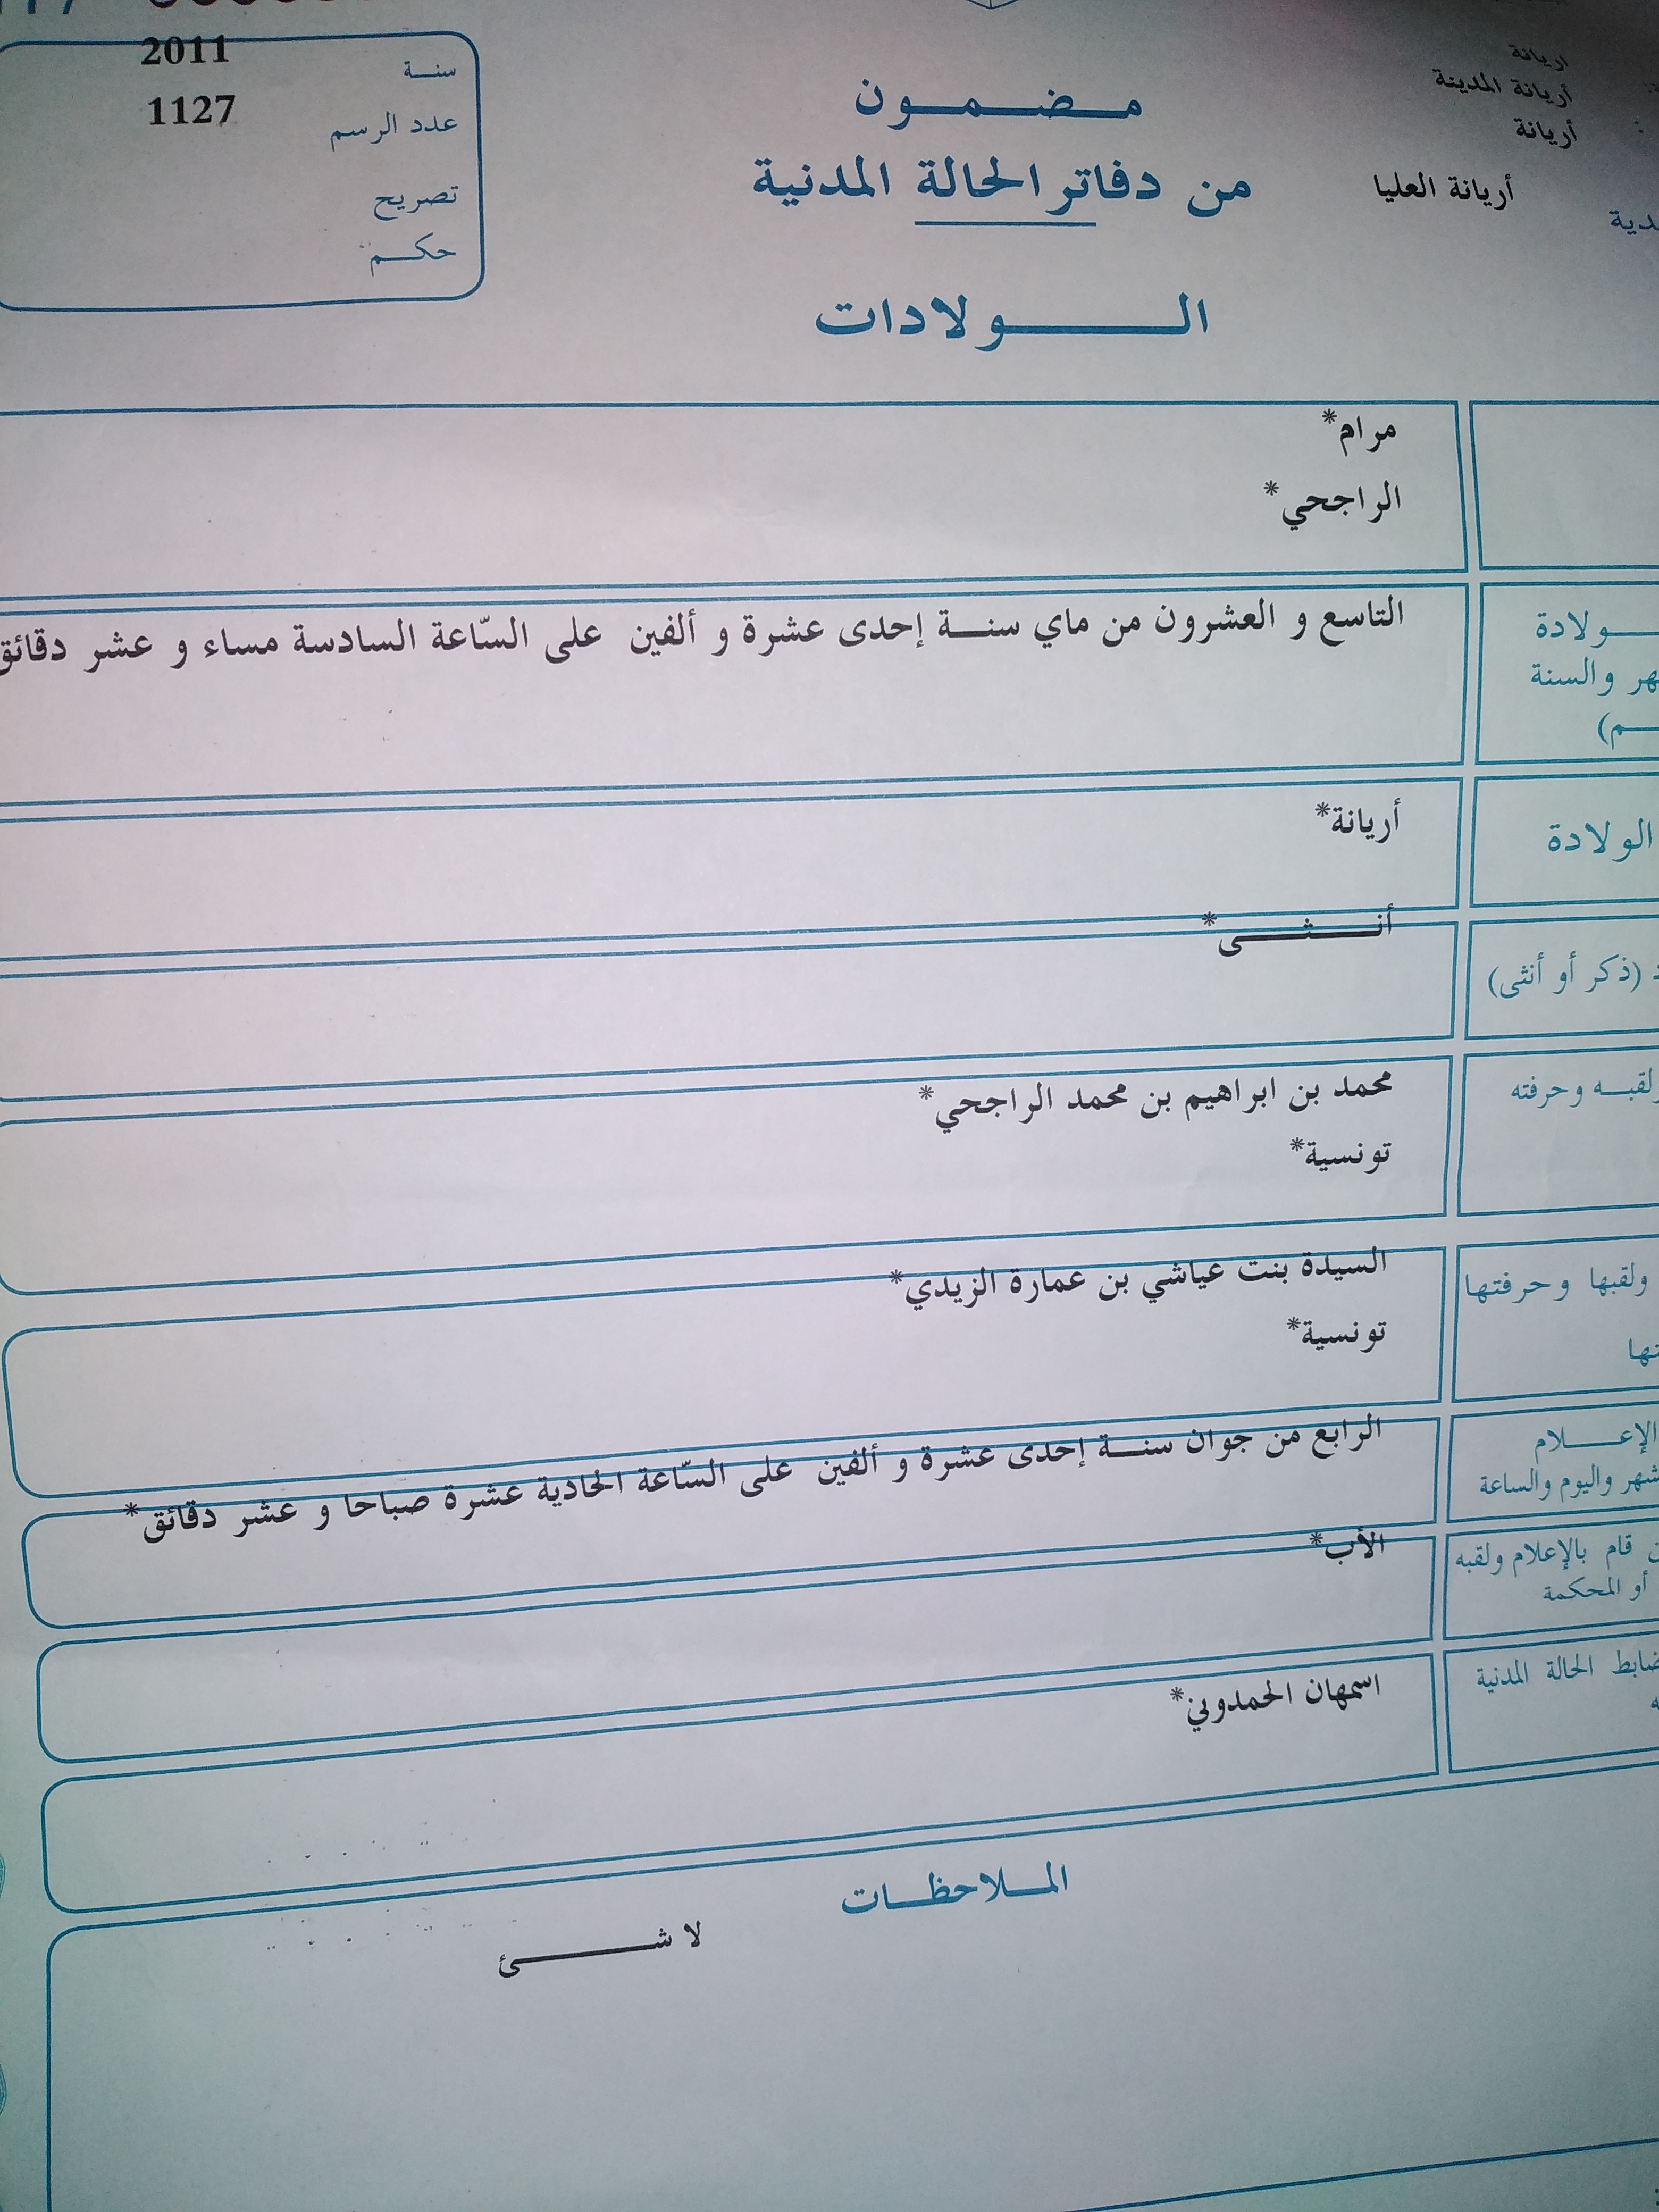 2011
سنة
1127
عدد الرسم
تصريح
حكم
اريانة
أريانة المدينة
أريانة
أريانة العليا
مضمون
من دفاتر الحالة المدنية
الولادات
مرام*
الراجحي*
ولادة
والسنة
التاسع و العشرون من ماي سنة إحدى عشرة و ألفين على السّاعة السادسة مساء و عشر دقائق
الولادة
أريانة*
(ذكر أو أنثى)
أنثى*
ولقبه وحرفته
محمد بن ابراهيم بن محمد الراجحي*
تونسية*
ولقبها وحرفتها
السيدة بنت عياشي بن عمارة الزيدي*
تونسية*
الإعلام
واليوم والساعة
الرابع من جوان سنة إحدى عشرة و ألفين على السّاعة الحادية عشرة صباحا و عشر دقائق*
قام بالإعلام ولقبه
أو المحكمة
الأب*
ضابط الحالة المدنية
اسمهان الحمدوني*
الملاحظات
لا شئ